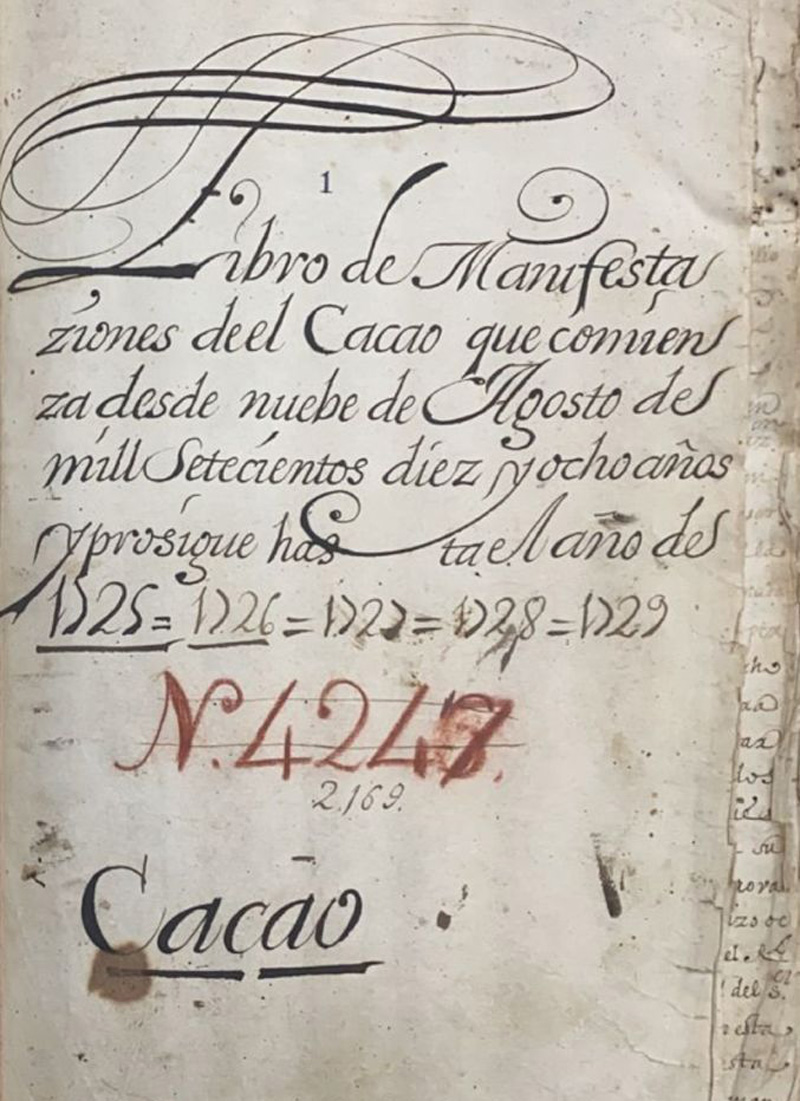 1
Libro de Manifesta
ziones de el Cacao que comien
za desde nuebe de Agosto de
mill Setecientos diez y ocho años
y prosigue has ta el año de
1725 = 1726 = 1727 = 1728 = 1729
N. 4247.
2.169.
Cacao
ho
los
su
el
del S.
esta
sta